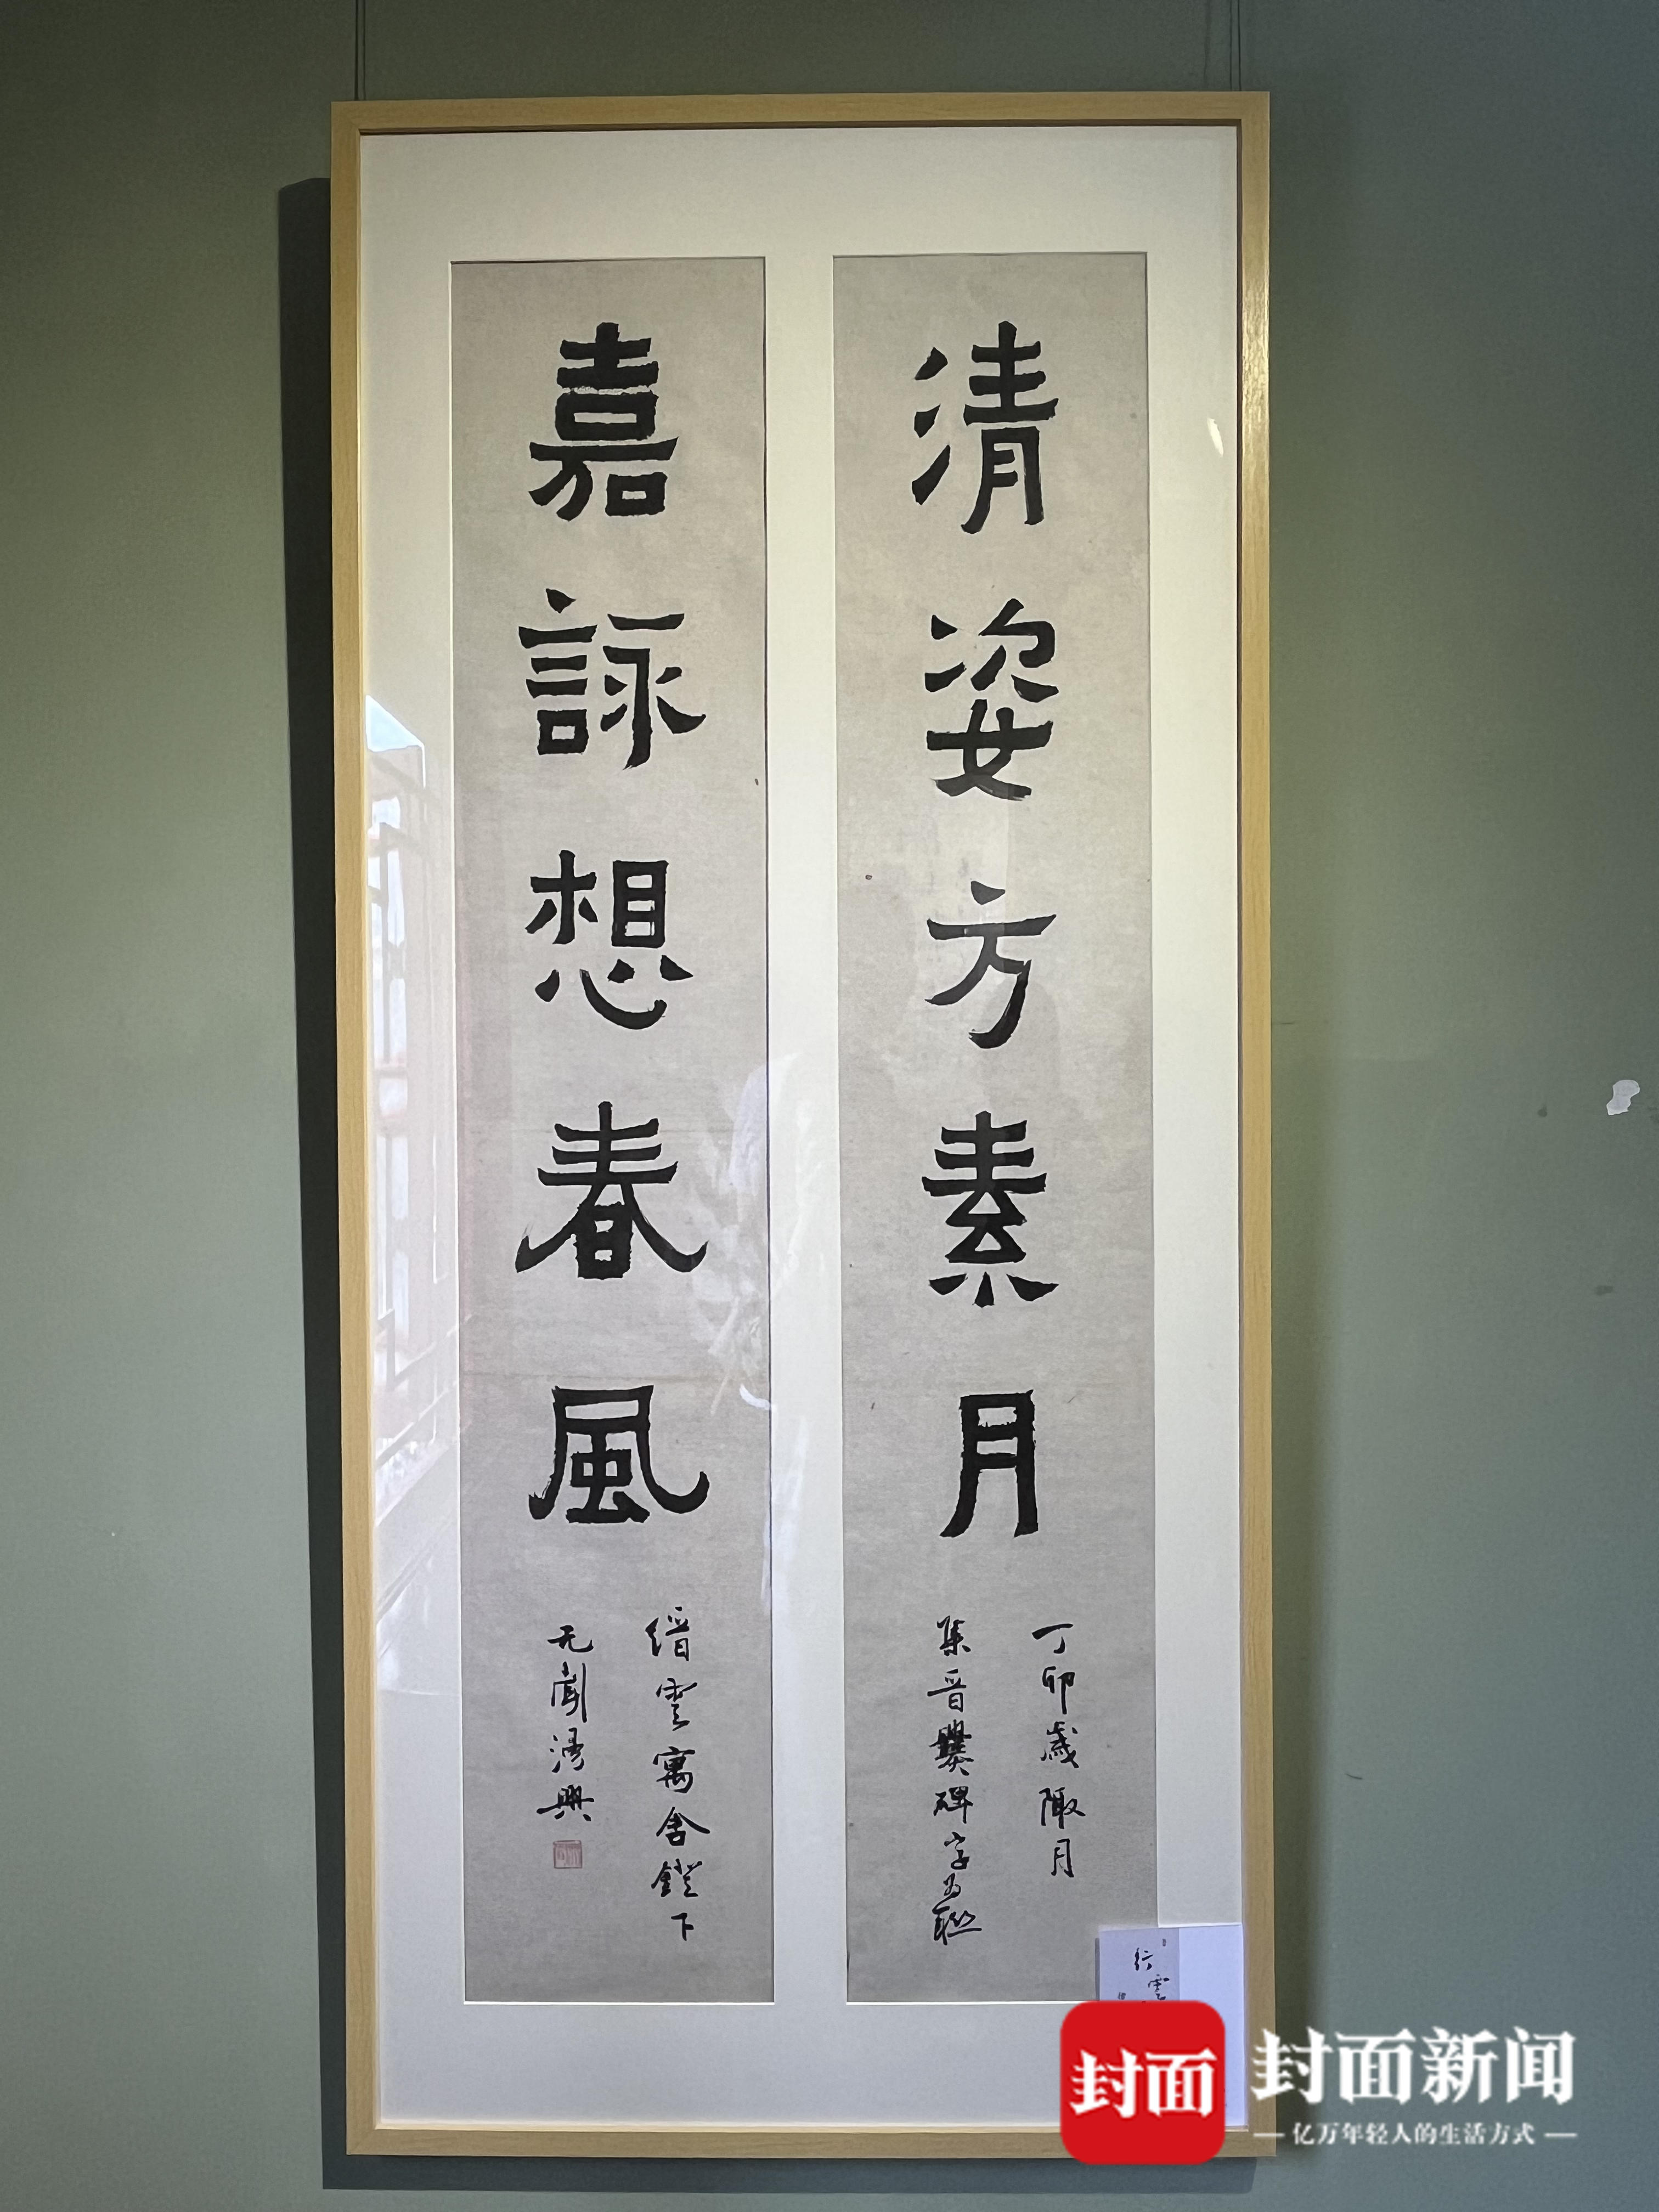 清姿方素月
丁卯歲陬月
集晋爨碑字为聯
嘉詠想春風
缙雲寓舍鐙下
无聞漫興
行雲
封面
封面新闻
亿万年轻人的生活方式